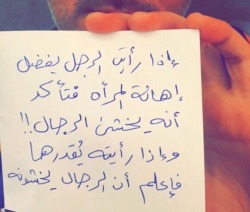 إذا رأيت الرجل يفضل
إهانة المرأه فتأكد
أنه يخشى الرجال!!
وإذا رأيته يُقدرها
فإعلم أن الرجال يخشونه